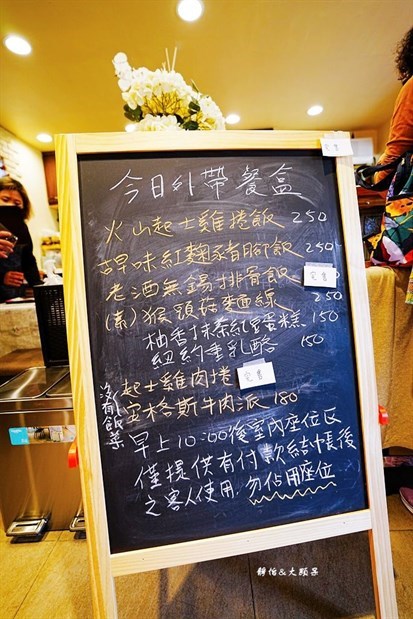 完售
今日外帶餐盒
火山起士雞捲飯 250
古早味紅麴豬腳飯 250
老酒無錫排骨飯 完售
(素)猴頭菇麵線 250
柚香抹茶紅蛋糕 150
紐約重乳酪 150
沒有飯菜
起士雞肉捲 完售
安格斯牛肉派 180
早上10:00後室內座位區
僅提供有付款結帳後
之客人使用,勿佔用座位
靜怡&大顆呆